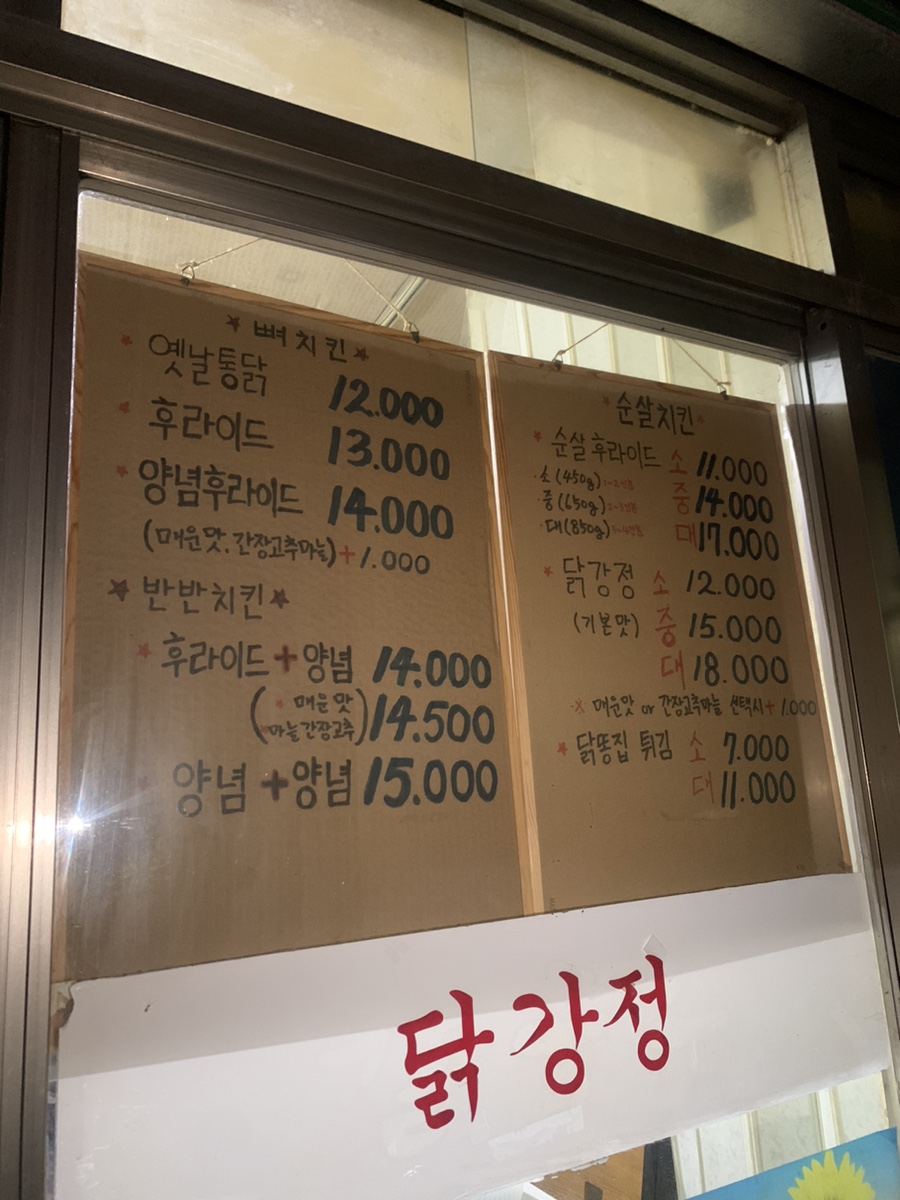 뼈치킨
옛날통닭 12.000
후라이드 13.000
양념후라이드 14.000
(매운맛, 간장고추마늘)+1.000
반반치킨
후라이드+양념 14.000
(매운맛
마늘간장고추) 14.500
양념+양념 15.000
순살치킨
순살후라이드 소 11.000
소(450g) 1~2인분
중 14.000
중(650g) 2~3인분
대(850g) 3~4인분
대 17.000
닭강정 소 12.000
(기본맛) 중 15.000
대 18.000
※ 매운맛 or 간장고추마늘 선택시+1.000
닭똥집 튀김 소 7.000
대 11.000
닭강정